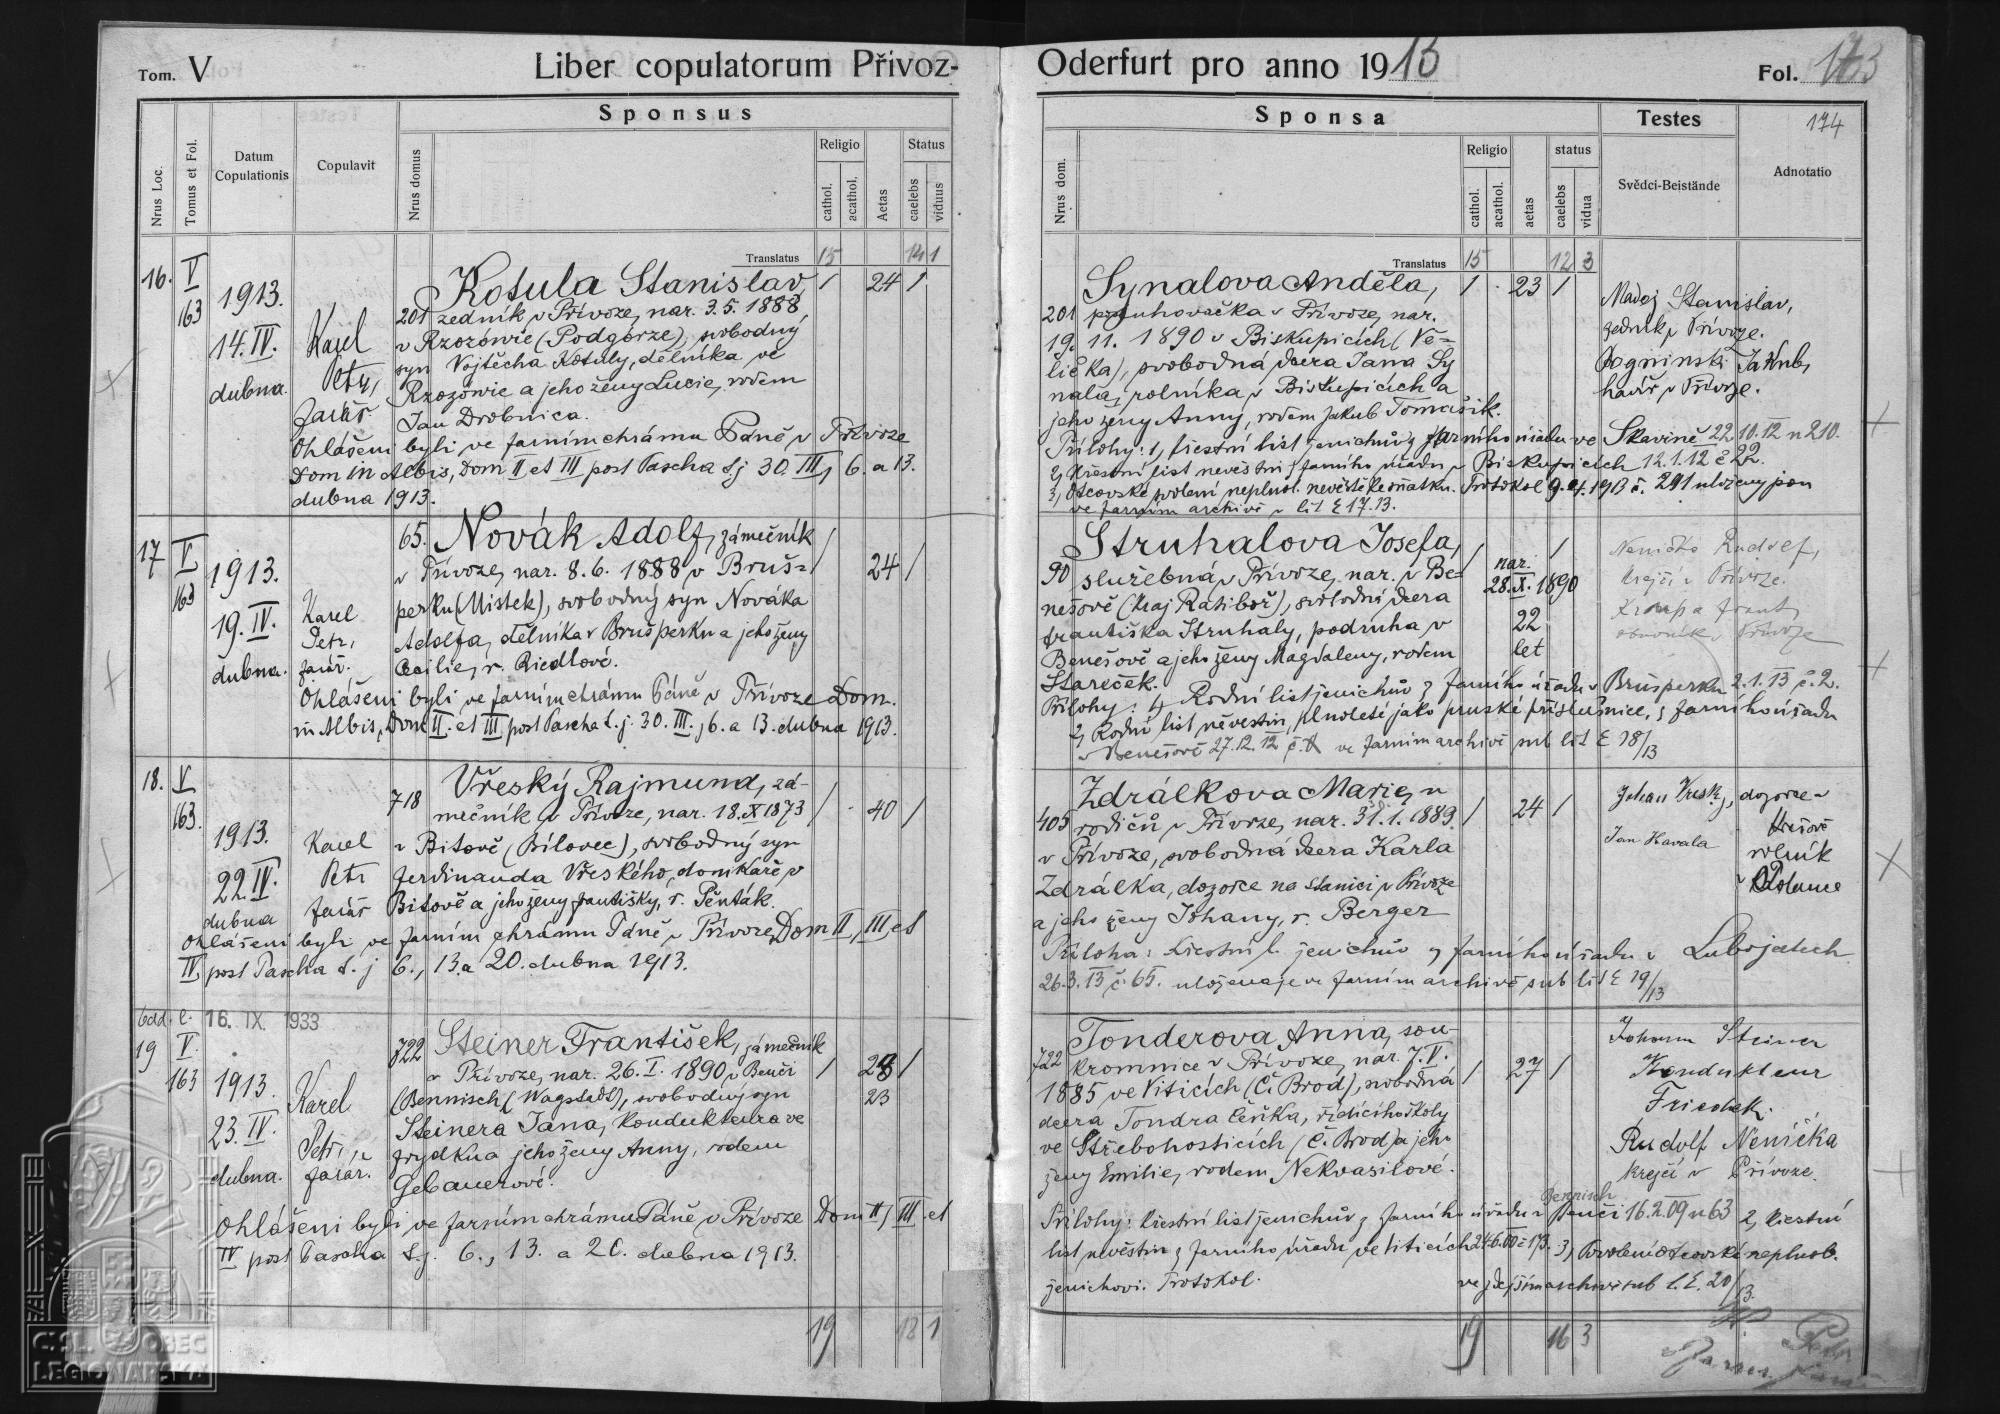 Tom. V
Liber copulatorum Přivoz-
Nrus Loc.
Tomus et Fol.
Datum Copulationis
Copulavit
Sponsus
Nrus domus
Religio
cathol.
acathol.
Aetas
Status
caelebs
viduus
Translatus 15 14 1
16. V 163
1913.
14. IV.
dubna.
Karel
Petr,
farář.
Kotula Stanislav, 1 24 1
201 zedník v Přívoze, nar. 3.5. 1888
v Rzozówie (Podgórze), svobodný
syn Vojtěcha Kotuly, dělníka ve
Rzozówie a jeho ženy Lucie, rodem
Jan Drobnica.
Ohlášeni byli ve farním chrámu Páně v Přívoze
Dom in Albis, Dom II et III post Pascha t.j 30. III, 6. a 13.
dubna 1913.
17 V 163
1913.
19. IV.
dubna.
Karel
Petr,
farář.
65. Novák Adolf, zámečník 1
v Přívoze, nar. 8. 6. 1888 v Bruš- 24 1
perku (Mistek), svobodný syn Nováka
Adolfa, dělníka v Brušperku a jeho ženy
Cecilie, r. Riedlové.
Ohlášeni byli ve farním chrámu Páně v Přívoze Dom.
in Albis, Dom II. et III post Pascha t. j. 30. III. 6. a 13. dubna 1913.
18. V 163.
1913.
22. IV.
dubna
Karel
Petr
farář
718 Vřeský Rajmund, zá-
mečník v Přívoze, nar. 18. X 1873 1 40 1
v Bitově (Bílovec), svobodný syn
Ferdinanda Vřeského, domkaře v
Bitově a jeho ženy Františky, r. Pěnták.
Ohlášeni byli ve farním chrámu Páně v Přívoze, Dom II, III, et
IV post Pascha t. j 6., 13. a 20. dubna 1913.
16. IX. 1933
19 V. 163
1913.
23. IV.
dubna.
Karel
Petr,
farář.
722 Steiner František, zámečník
v Přívoze, nar. 26. I. 1890 v Benči 1 28 1
(Bennisch (Wagstadt), svobodný syn 23
Steinera Jana, kondukteura ve
Frydku a jeho ženy Anny, rodem
Gebauerové.
Ohlášeni byli ve farním chrámu Páně v Přívoze Dom II, III. et
IV post Pascha t.j. 6., 13. a 20. dubna 1913.
19 18 1
Oderfurt pro anno 1913
Fol. 173
174
Sponsa
Testes
Nrus dom.
Religio
cathol.
acathol.
aetas
status
caelebs
vidua
Svědci-Beistände
Adnotatio
Translatus 15 12 3
Synalova Anděla, 1 23 1
201 v Přívoze, nar.
19. 11. 1890 v Biskupicích (Ve-
lička), svobodná dcera Jana Sy
nala, rolníka v Biskupicích a
jeho ženy Anny, rodem Jakub Tomašik.
Madej Stanislav,
zedník v Přívoze.
Jakub,
havíř v Přívoze.
Přílohy: 1, křestní list jenichův z farního úřadu ve Skavině 22 10. 12 n 210.
2, Křestní list nevěstin z farního úřadu v Biskupicích 12. 1. 12 č 22.
3, Otcovské svolení neplnol. nevěstě ke sňatku. Protokol 9. 4. 1913 č. 291 uloženy jsou
ve farním archivě v lit E 17. 13.
Struhalova Josefa, 1 1
90 služebná v Přívoze, nar. v Be- nar. 28. X. 1890
nešově (kraj Ratiboř), svobodná dcera
Františka Struhaly, podruha v 22
Benešově a jeho ženy Magdaleny, rodem let
Stareček.
Nenička Rudolf,
krejčí v Přívoze.
Kroupa Frant,
obuvník v Přívoze
Přílohy: 1, Rodní list jenichův z farního úřadu v Brušperku 2. 1. 13 č. 2.
2, Rodní list nevěstin, plnoleté jako pruské příslušnice, z farního úřadu
v Benešově 27. 12. 12 ve farním archivě sub lit E 18/13
Zdrálkova Marie, u
405 rodičů v Přívoze, nar. 31. 1. 1889. 1 24 1
v Přívoze, svobodná dcera Karla
Zdrálka, dozorce na stanici v Přívoze
a jeho ženy Johany, r. Berger
Johan Vřeský, dozorce v
Jan Havala rolník
v Polance
Příloha: křestní l. jenichův z farního úřadu v Lubojatech
26. 3. 13 č. 65. uložena je ve farním archivě sub lit E 19/13
Tonderova Anna, sou-
722 kromnice v Přívoze, nar. 7. V.
1885 ve Viticích (Č. Brod), svobodná 1 27 1
dcera Tondra Čeňka, řídícího školy
ve Střebohosticích (Č. Brod) a jeho
ženy Emilie, rodem Nekvasilové.
Johann Steiner
Kondukteur
Friedek.
Rudolf Nenička
krejčí v Přívoze.
Bennisch
Přílohy: křestní list jenichův z farního úřadu v Benči 16. 2. 09 n 63 2, křestní
list nevěstin z farního úřadu ve Viticích 24. 6. 00 č 173. 3, Povolení otcovské neplnol.
ženichovi. Protokol. ve zdejším archivě sub l. E. 20/13.
19 16 3
Č.SL. OBEC
LEGIONÁŘSKÁ